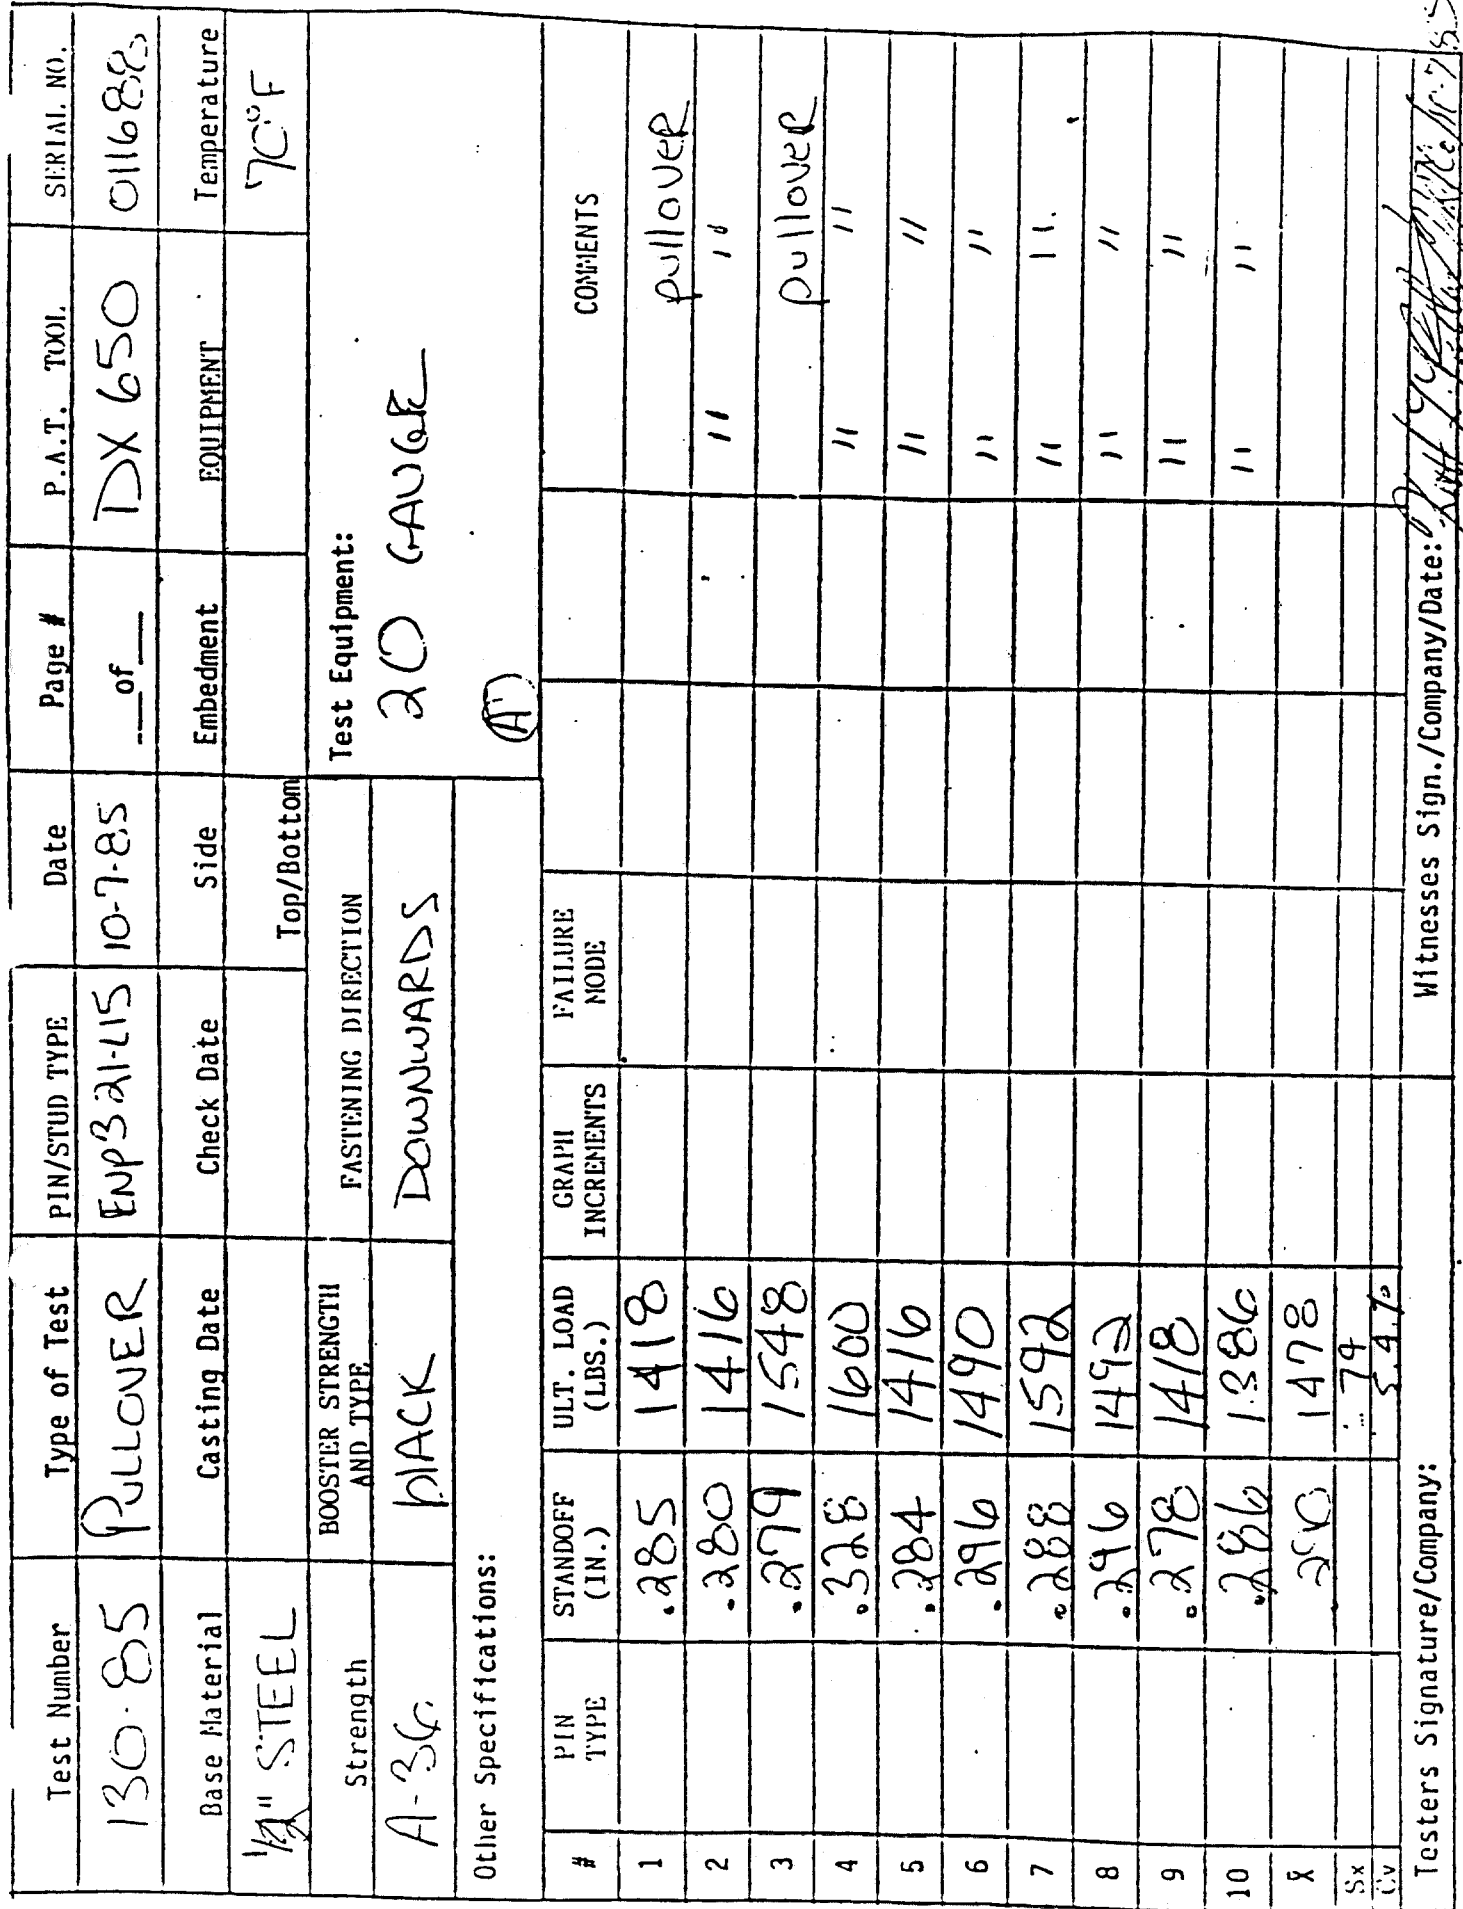 Test Number Type of Test PIN/STUD TYPE Date Page # P.A.T. TOOL SERIAL NO.
130-85 PULLOVER ENP3 21-L15 10-7-85 __of__ DX 650 011688
Base Material Casting Date Check Date Side Embedment EQUIPMENT Temperature
1/2" STEEL Top/Bottom 70°F
Strength BOOSTER STRENGTH FASTENING DIRECTION Test Equipment:
AND TYPE
A-36 blACK DOWNWARDS 20 GAUGE
Other Specifications:
# PIN STANDOFF ULT. LOAD GRAPH FAILURE COMMENTS
TYPE (IN.) (LBS.) INCREMENTS MODE
1 .285 1418 pullover
2 .280 1416 " "
3 .279 1548 pullover
4 .328 1600 " "
5 .284 1416 " "
6 .296 1490 " "
7 .288 1592 " "
8 .296 1492 " "
9 .278 1418 " "
10 .286 1386 " "
X̄ .290 1478
Sx 79
Cv 5.4%
Testers Signature/Company: Witnesses Sign./Company/Date: